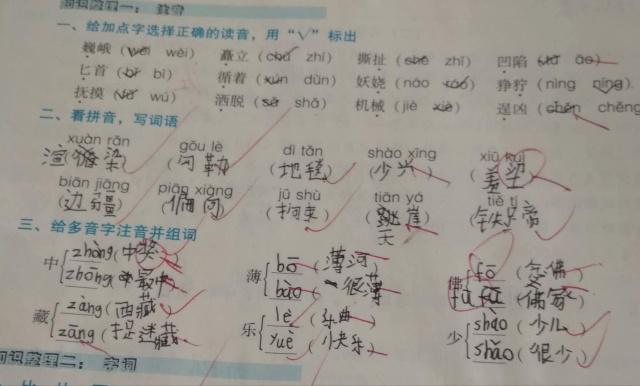 知识整理一：教写
一、给加点字选择正确的读音，用“√”标出
巍峨（wēi wèi） 矗立（chù zhí） 撕扯（chě zhǐ） 凹陷（āo）
匕首（bǐ bì） 循着（xún dùn） 妖娆（náo ráo） 狰狞（nìng níng）
抚摸（fǔ wú） 洒脱（sǎ shǎ） 机械（jiè xiè） 逞凶（chěn chěng）
二、看拼音，写词语
xuàn rǎn gōu lè dì tǎn shào xīng xiū kuì
（渲染）（勾勒）（地毯）（少兴）（羞）
biān jiāng piān xiàng jū shù tiān yá tiě tí
（边疆）（偏向）（拘束）（跳崖）（铁蹄）
天
三、给多音字注音并组词
中 zhòng（中奖） 薄 bō（薄河） 佛 fó（念佛）
zhōng（中最中） bào（很薄） fú（儒家）
藏 zàng（西藏） 乐 lè（乐曲） 少 shào（少儿）
zāng（捉迷藏） yuè（快乐） shǎo（很少）
知识整理二：字词